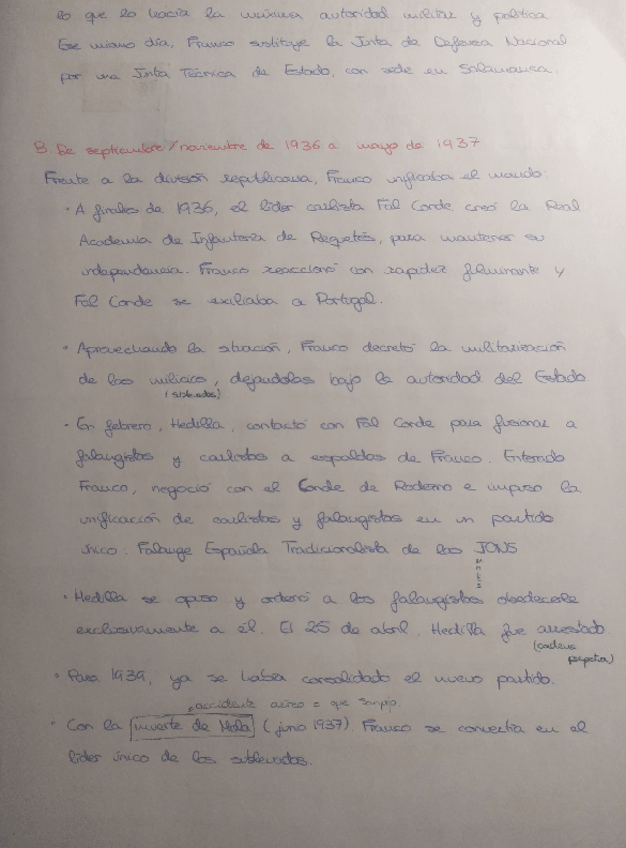 lo que lo hacía la máxima autoridad militar y política
Ese mismo día, Franco sustituye la Junta de Defensa Nacional
por una Junta Técnica de Estado, con sede en Salamanca.
B. De septiembre/noviembre de 1936 a mayo de 1937
Frente a la división republicana, Franco unificaba el mando:
· A finales de 1936, el líder carlista Fal Conde creó la Real
Academia de Infantería de Requetés, para mantener su
independencia. Franco reaccionó con rapidez y
Fal Conde se exiliaba a Portugal.
· Aprovechando la situación, Franco decretó la militarización
de las milicias, dejándolas bajo la autoridad del Estado
(sublevados)
· En febrero, Hedilla, contactó con Fal Conde para fusionar a
falangistas y carlistas a espaldas de Franco. Enterado
Franco, negoció con el Conde de Rodezno e impuso la
unificación de carlistas y falangistas en un partido
único: Falange Española Tradicionalista de las JONS
· Hedilla se opuso y ordenó a los falangistas obedecerle
exclusivamente a él. El 25 de abril, Hedilla fue arrestado.
(cadena
perpetua)
· Para 1939, ya se había consolidado el nuevo partido.
accidente aéreo =
· Con la muerte de Mola (junio 1937). Franco se convertía en el
líder único de los sublevados.